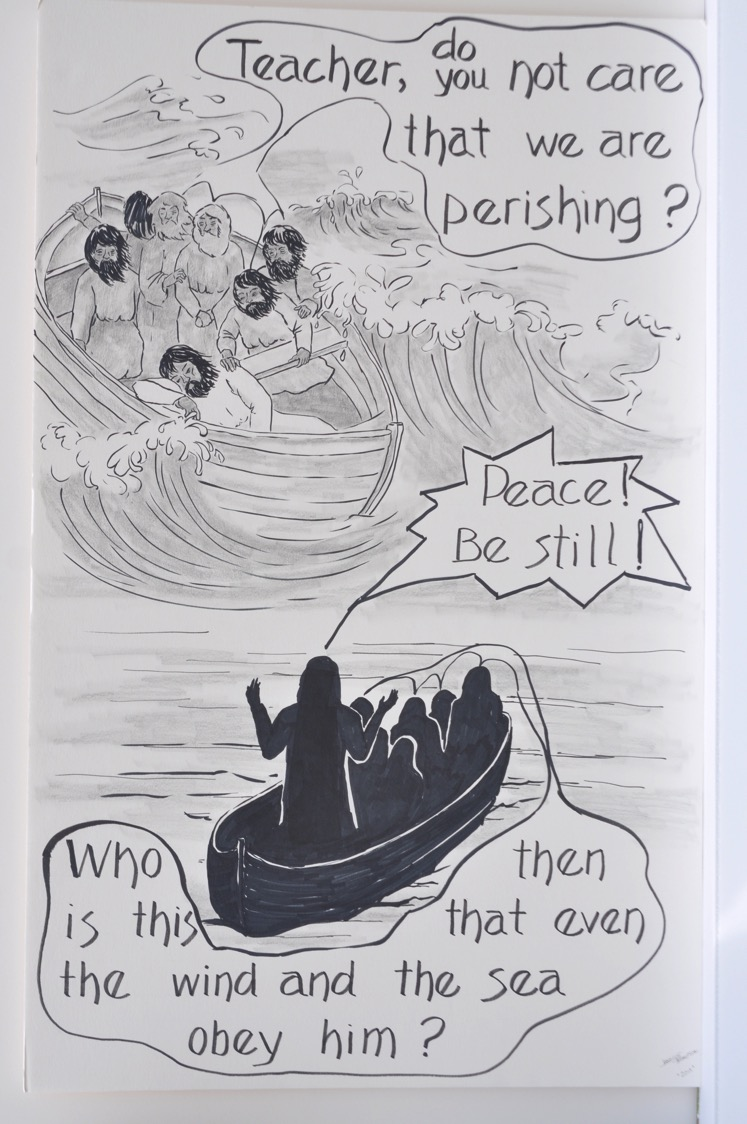 Teacher, do you not care
that we are
perishing ?
Peace!
Be still!
Who then
is this that even
the wind and the sea
obey him ?